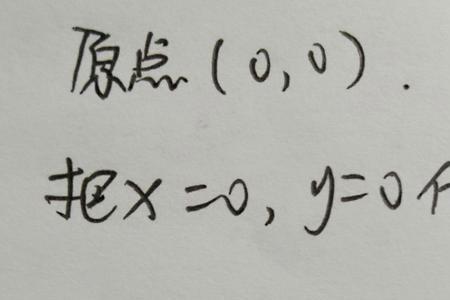 原点(0,0).
把x=0,y=0